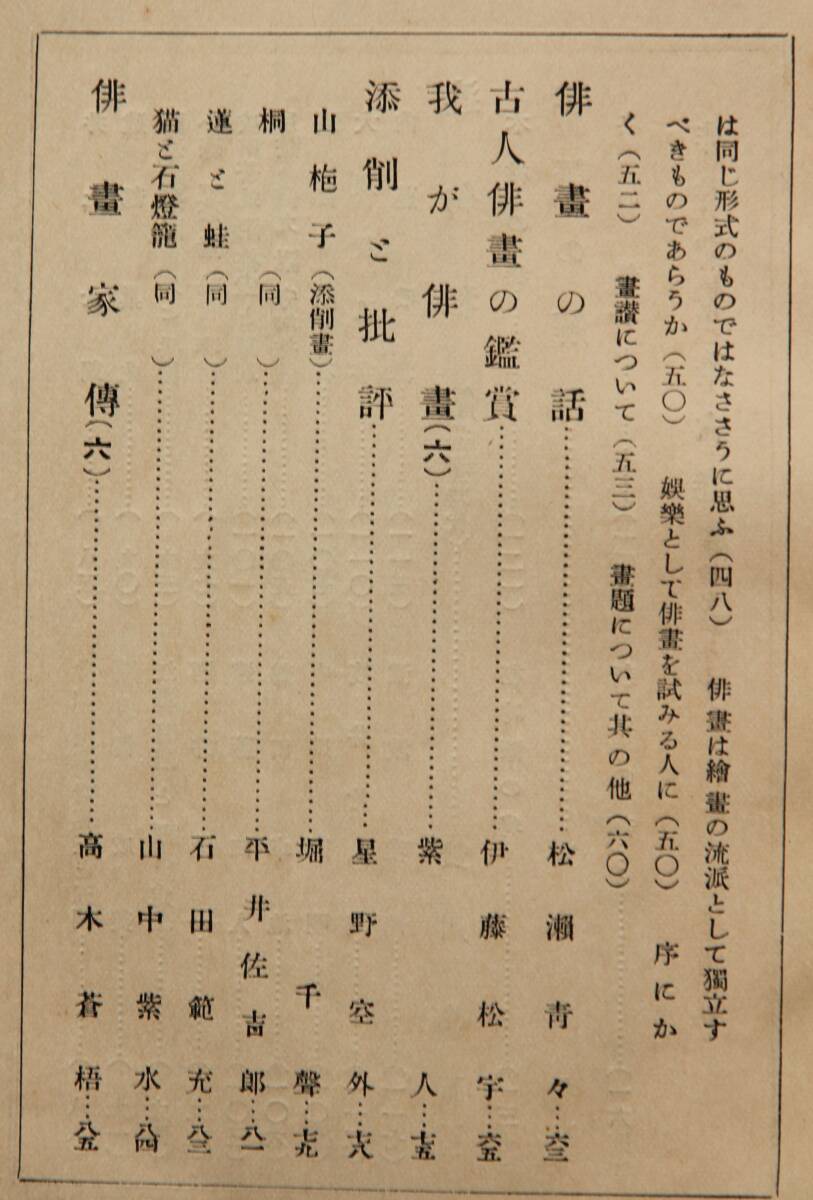 は同じ形式のものではなささうに思ふ(四八) 俳畫は繪畫の流派として獨立す
べきものであらうか(五〇) 娯樂として俳畫を試みる人に(五〇) 序にか
く(五二) 畫讃について(五三) 畫題について其の他(六〇)
俳畫の話……松瀬青々…六三
古人俳畫の鑑賞……伊藤松宇…六五
我が俳畫(六)……紫人…七五
添削と批評……星野空外…七八
山梔子(添削畫)……堀千聲…七九
桐(同)……平井佐吉郎…八一
蓮と蛙(同)……石田範充…八三
猫と石燈籠(同)……山中紫水…八四
俳畫家傳(六)……高木蒼梧…八五